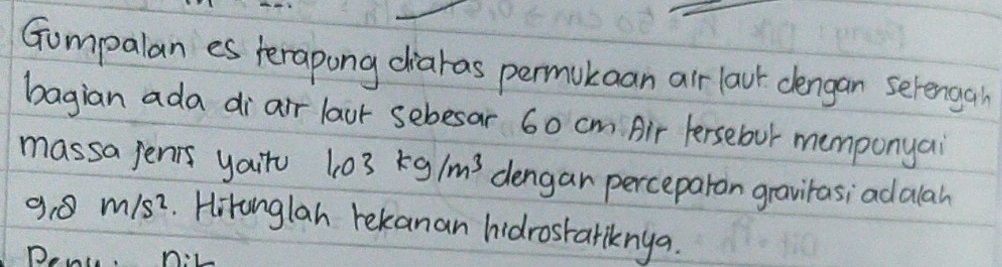 Gumpalan es terapung diatas permukaan air laut dengan setengah
bagian ada di air laut sebesar 60 cm. Air tersebut memponyai
massa jenis yaitu 1,03 kg/m³ dengan percepatan gravitasi adalah
9,8 m/s². Hitunglah tekanan hidrostatiknya.
Peny: Dik